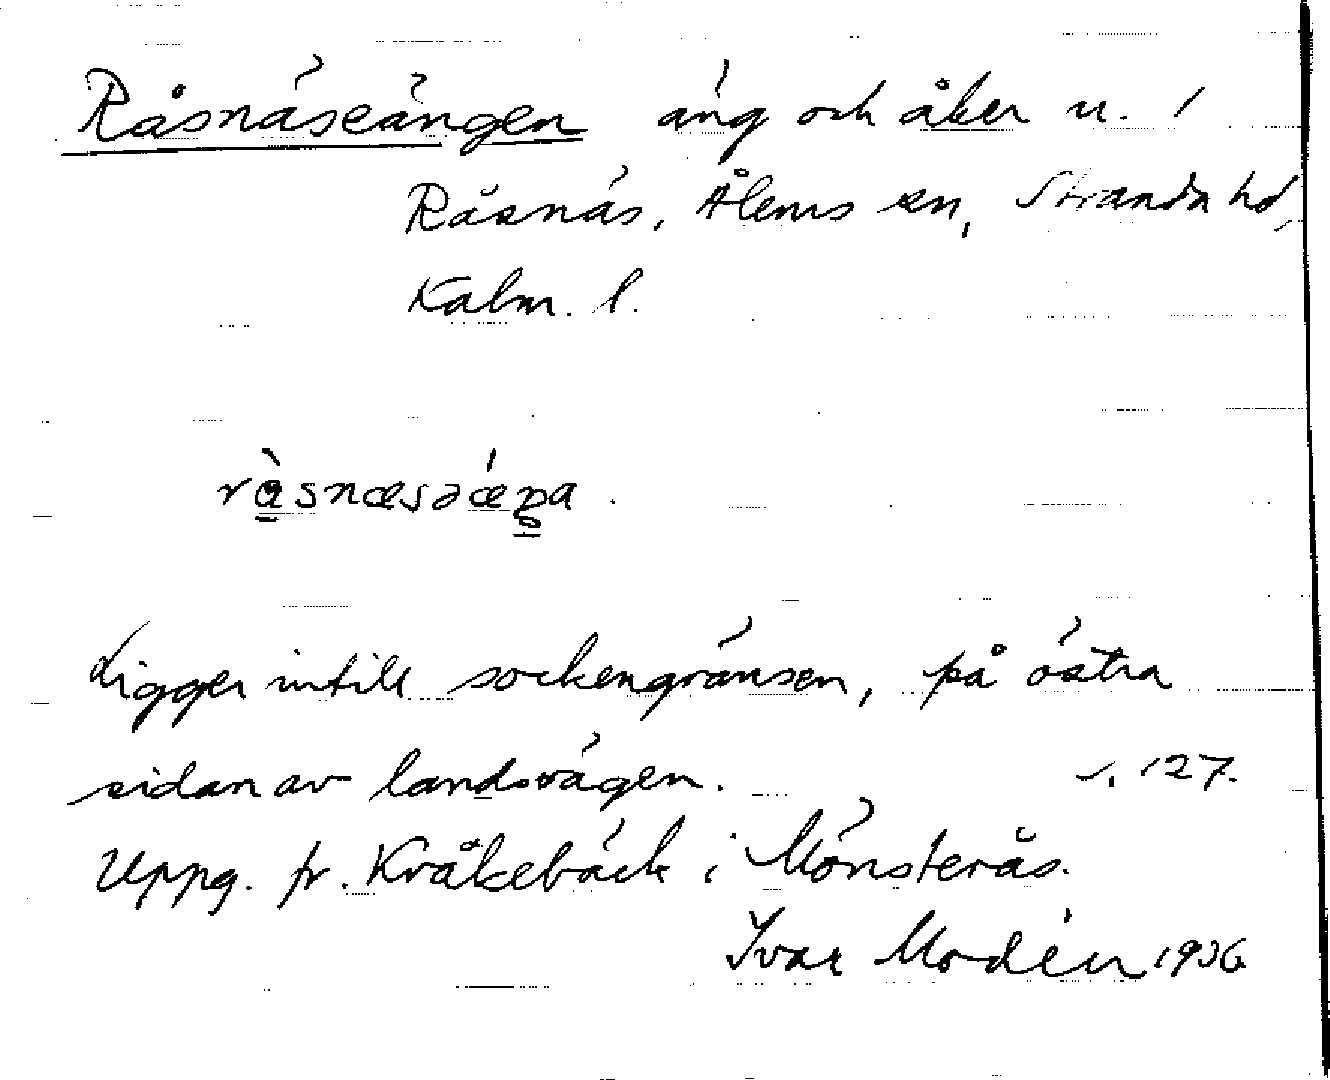 Råsnäseängen äng och åker u. 1
Råsnäs, Ålems sn, Stranda hd,
Kalm. l.
ràsnæsəǽŋa.
Ligger intill sockengränsen, på östra
sidan av landsvägen. s. 127.
Uppg. fr. Kråkebäck i Mönsterås.
Ivar Modéer 1936